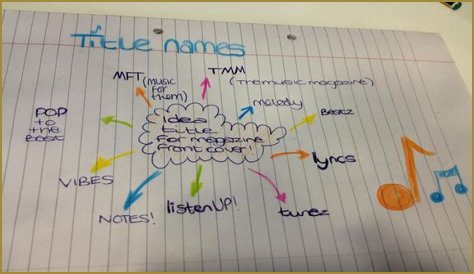 Title names
MFT (music
for
them)
TMM
(the music magazine)
melody
Beatz
lyrics
tunez
listenUP!
NOTES!
VIBES
POP
to
the
Beat
Idea
title
for magazine
front cover!